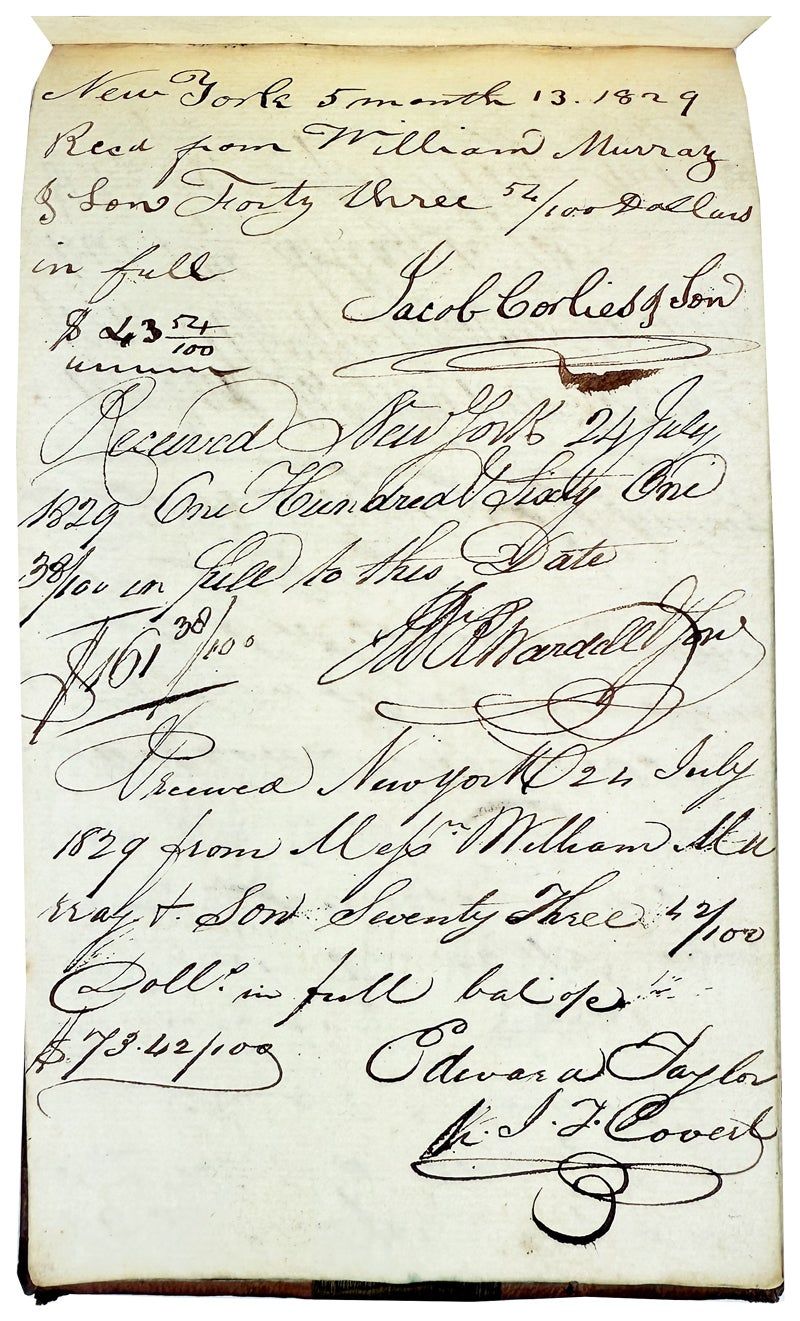 New York 5 month 13. 1829
Recd from William Murray
& Son Forty three 54/100 Dollars
in full
Jacob Corlies & Son
$ 43 54/100
Received New York 24 July
1829 One Hundred Sixty One
38/100 in full to this Date
Wardell & Sons
$161 38/100
Received New York 24 July
1829 from Messrs William Mu
rray & Son Seventy Three 42/100
Dolls in full bal of
$73.42/100
Edward Taylor
J. F. Covert